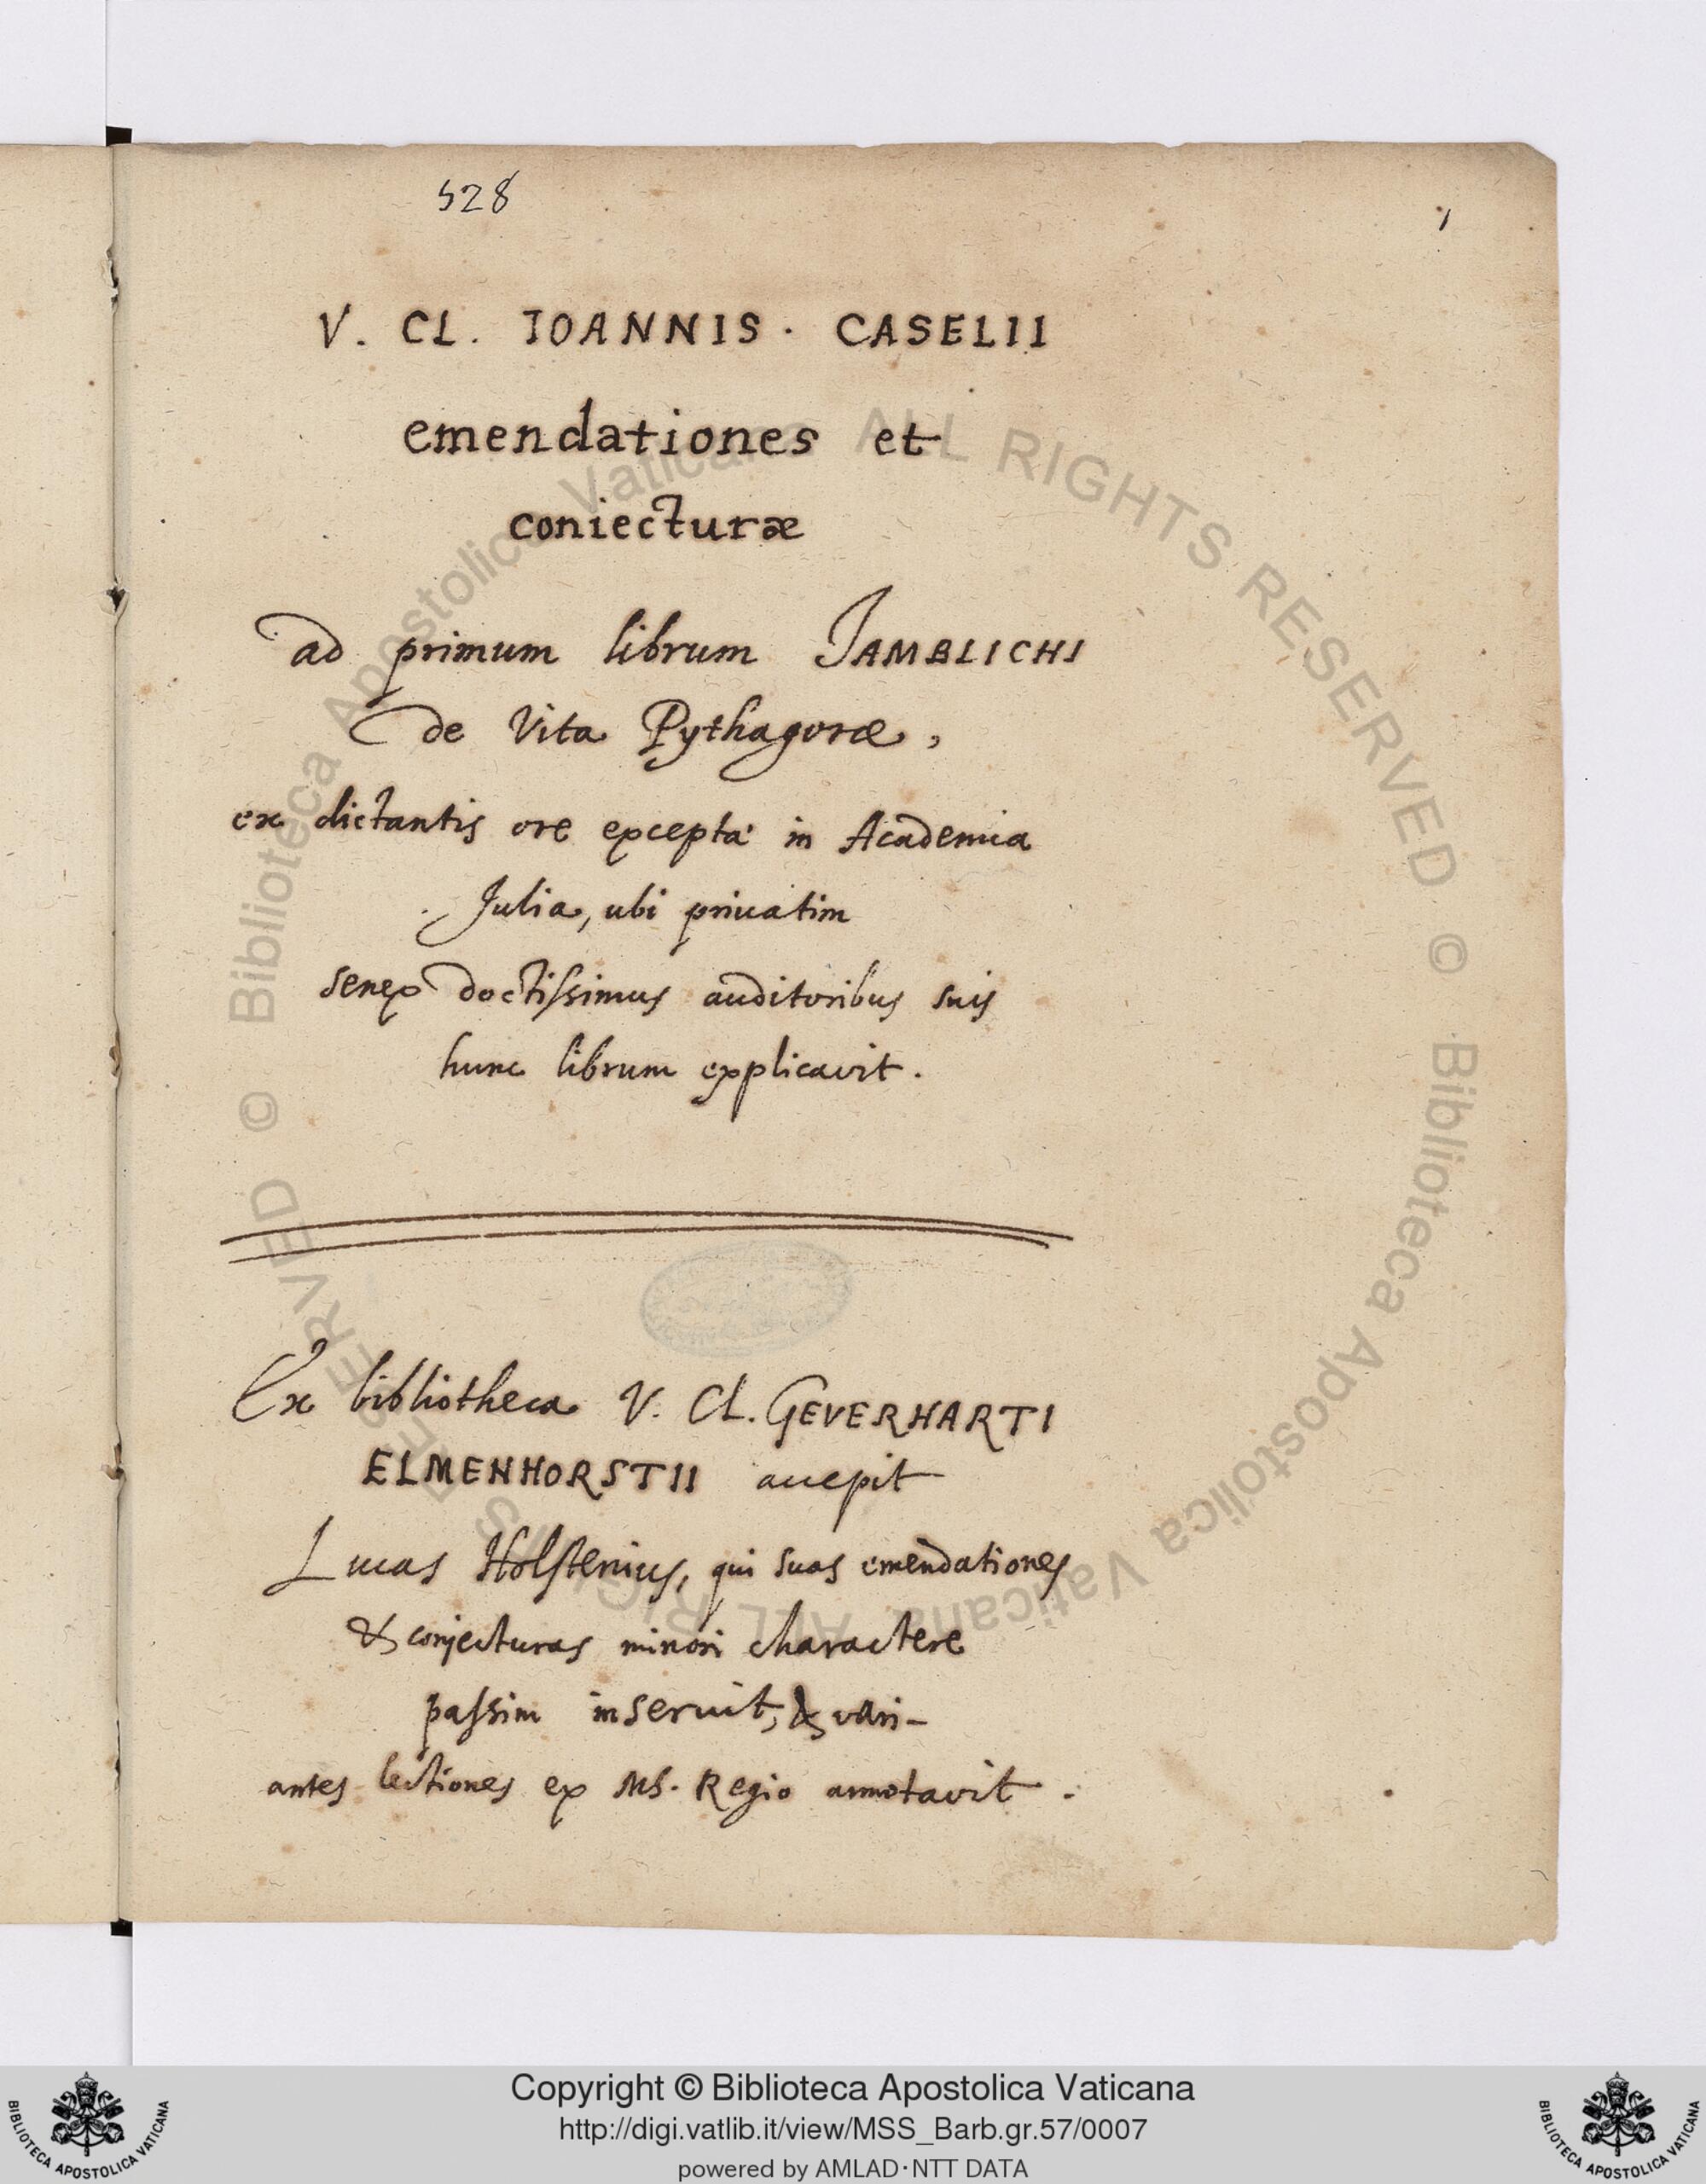 528
1
V. CL. IOANNIS · CASELII
emendationes et
coniecturæ
ad primum librum JAMBLICHI
de Vita Pythagoræ,
ex dictantis ore excepta in Academia
Julia, ubi privatim
senex doctissimus auditoribus suis
hunc librum explicavit.
Ex bibliotheca V. CL. GEVERHARTI
ELMENHORSTII accepit
Lucas Holstenius, qui suas emendationes
& conjecturas minori charactere
passim inseruit, & vari-
antes lectiones ex MS. Regio annotavit.
© Biblioteca Apostolica Vaticana ALL RIGHTS RESERVED © Biblioteca Apostolica Vaticana ALL RIGHTS RESERVED
Copyright © Biblioteca Apostolica Vaticana
http://digi.vatlib.it/view/MSS_Barb.gr.57/0007
powered by AMLAD·NTT DATA
BIBLIOTECA APOSTOLICA VATICANA
BIBLIOTECA APOSTOLICA VATICANA